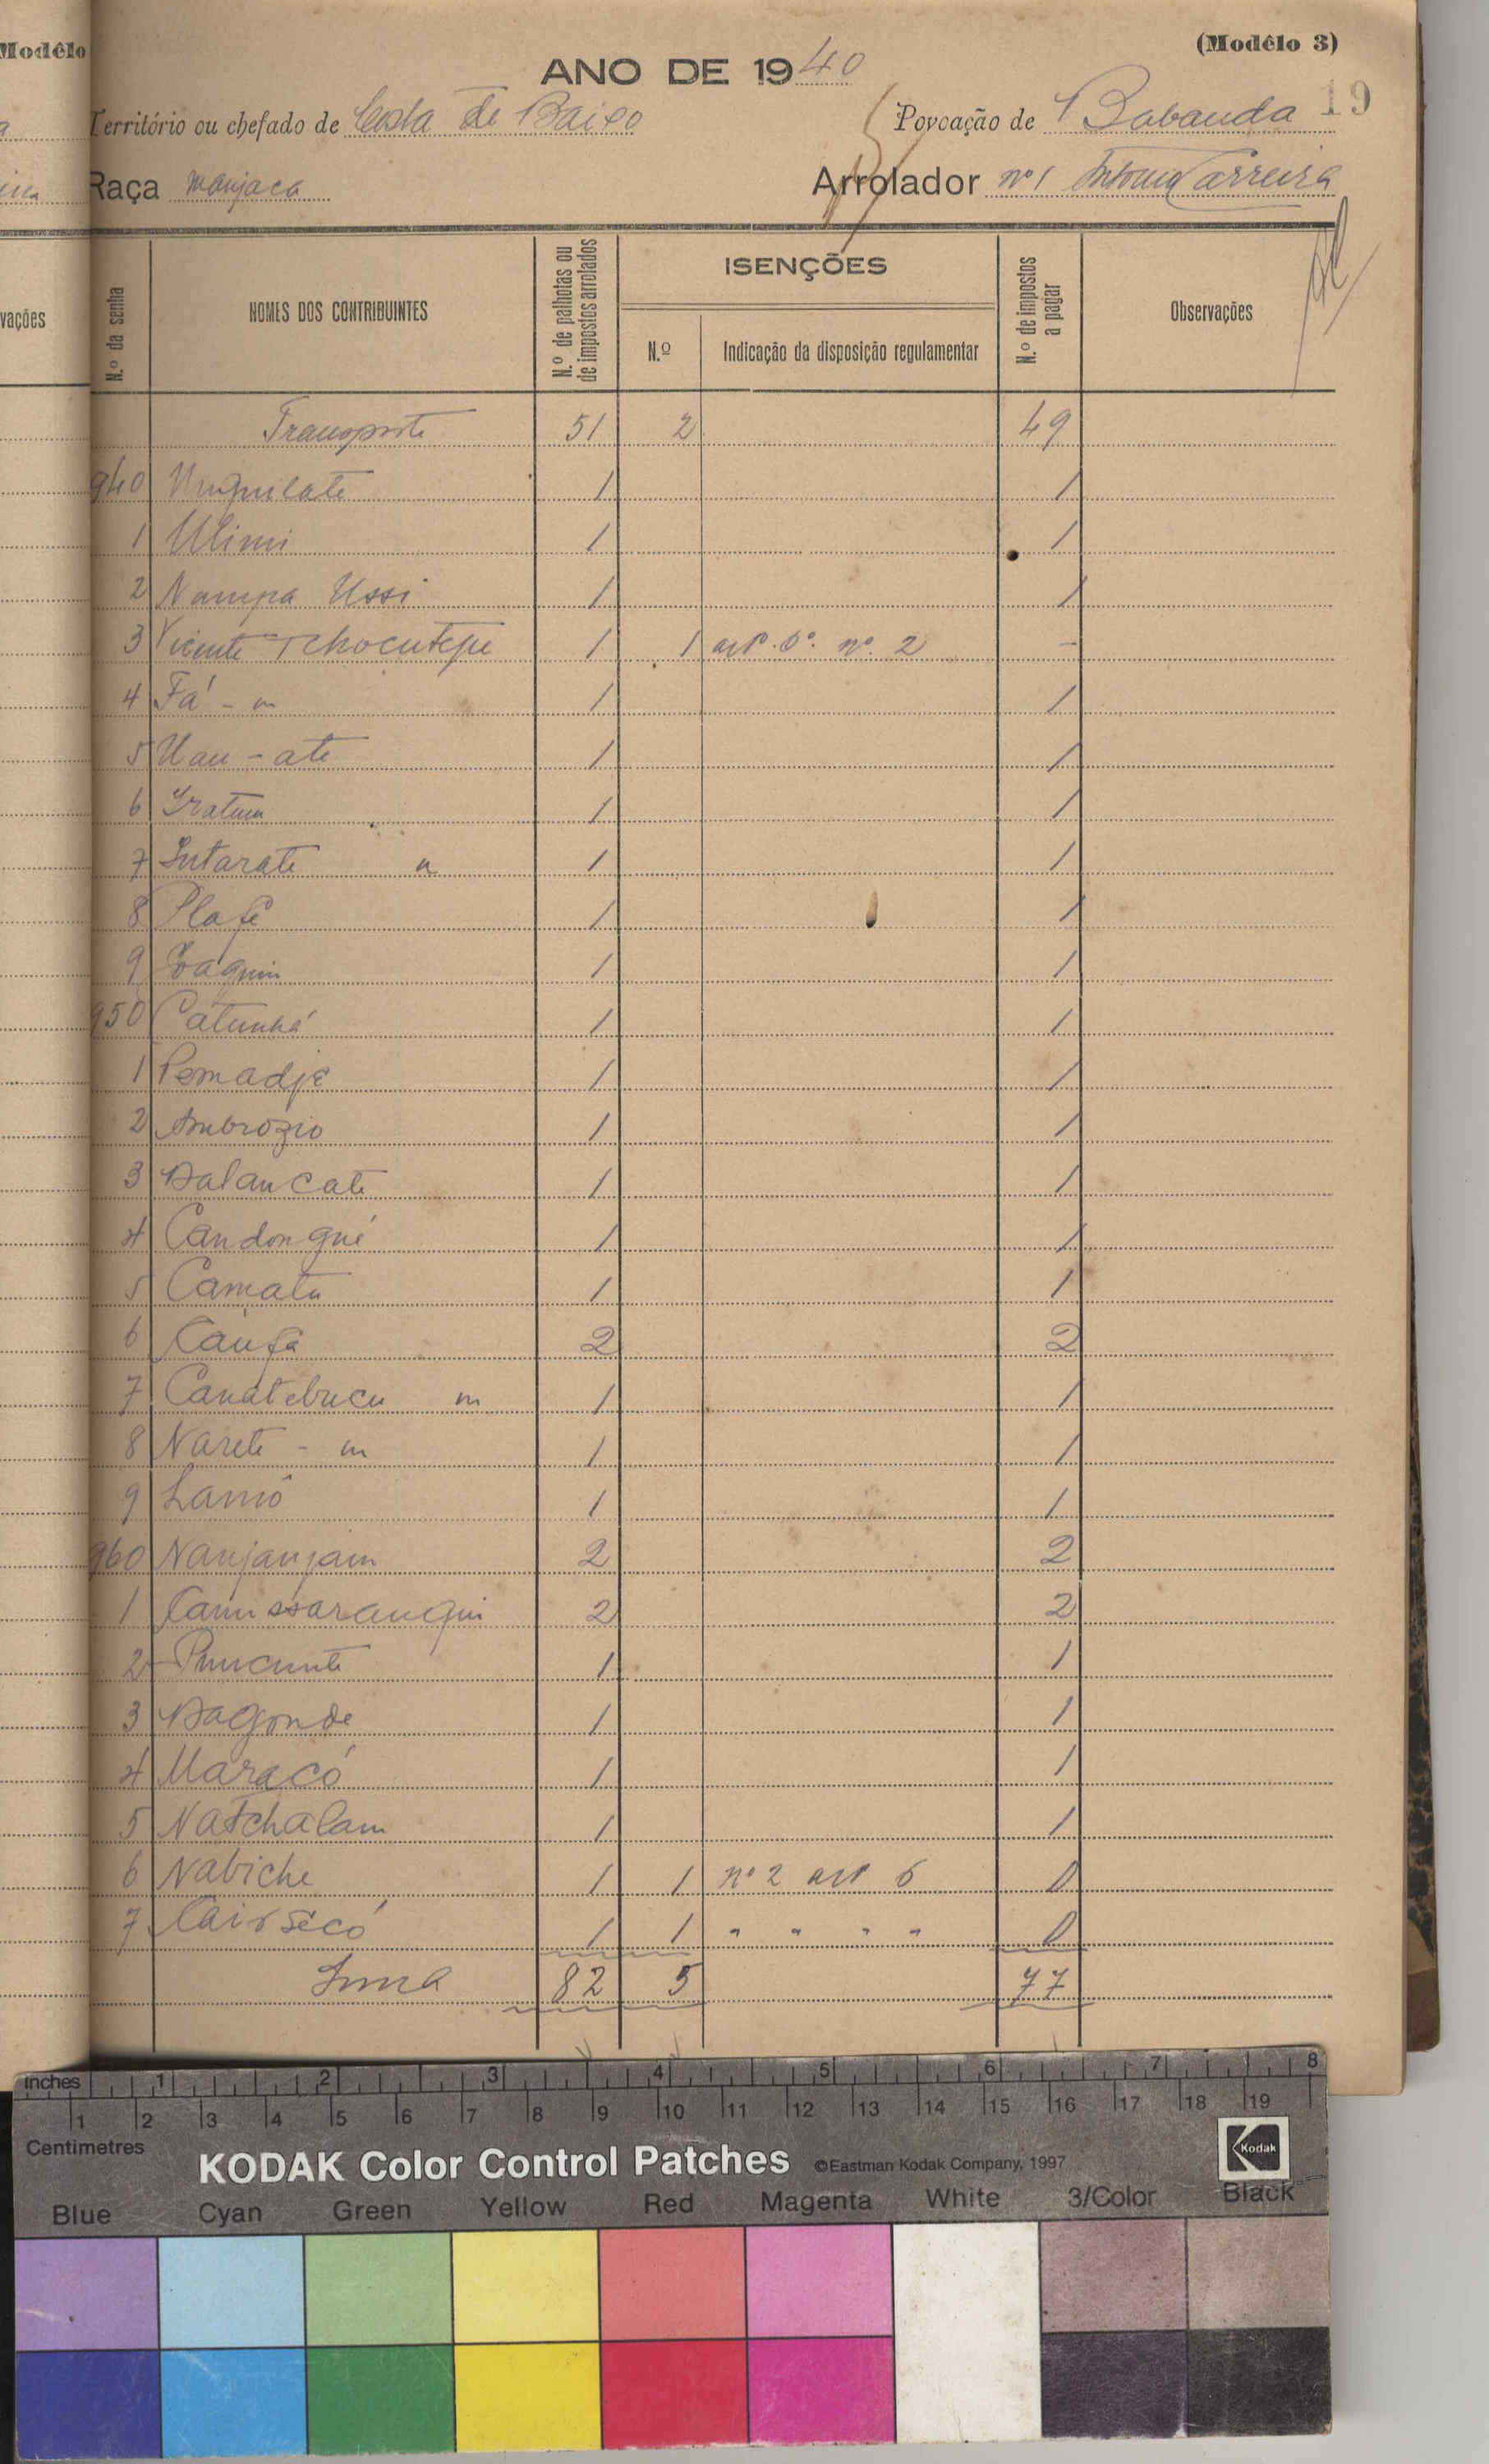 Modêlo
(Modêlo 3)
ANO DE 1940
19
Território ou chefado de Costa de Baixo
Povoação de Babanda
Raça manjaca
Arrolador nº 1 António Carreira
vações
N.º da senha
NOMES DOS CONTRIBUINTES
N.º de palhotas ou de impostos arrolados
ISENÇÕES
N.º
Indicação da disposição regulamentar
N.º de impostos a pagar
Observações
Transporte 51 2 49
940 1 1
1 Ulimi 1 1
2 Nampa Ussi 1 1
3 Vicente Tchocutepe 1 1 artº. 6º. nº. 2 -
4 Fá - m 1 1
5 Uau - ate 1 1
6 1 1
7 Intarate 1 1
8 Plafé 1 1
9 Joaquim 1 1
950 Catunhá 1 1
1 Pemadje 1 1
2 Ambrozio 1 1
3 Dalancate 1 1
4 Candongué 1 1
5 Camata 1 1
6 Caufa 2 2
7 Canatebucu m 1 1
8 Narete - m 1 1
9 Lamô 1 1
960 Nanjanjam 2 2
1 Camssarangui 2 2
2 1 1
3 Dagonde 1 1
4 Maracó 1 1
5 Natchalam 1 1
6 Nabiche 1 1 nº 2 artº 6 0
7 1 1 " " " " 0
Suma 82 5 77
inches 1 2 3 4 5 6 7 8
1 2 3 4 5 6 7 8 9 10 11 12 13 14 15 16 17 18 19
Centimetres
KODAK Color Control Patches ©Eastman Kodak Company, 1997
Kodak
Blue Cyan Green Yellow Red Magenta White 3/Color Black